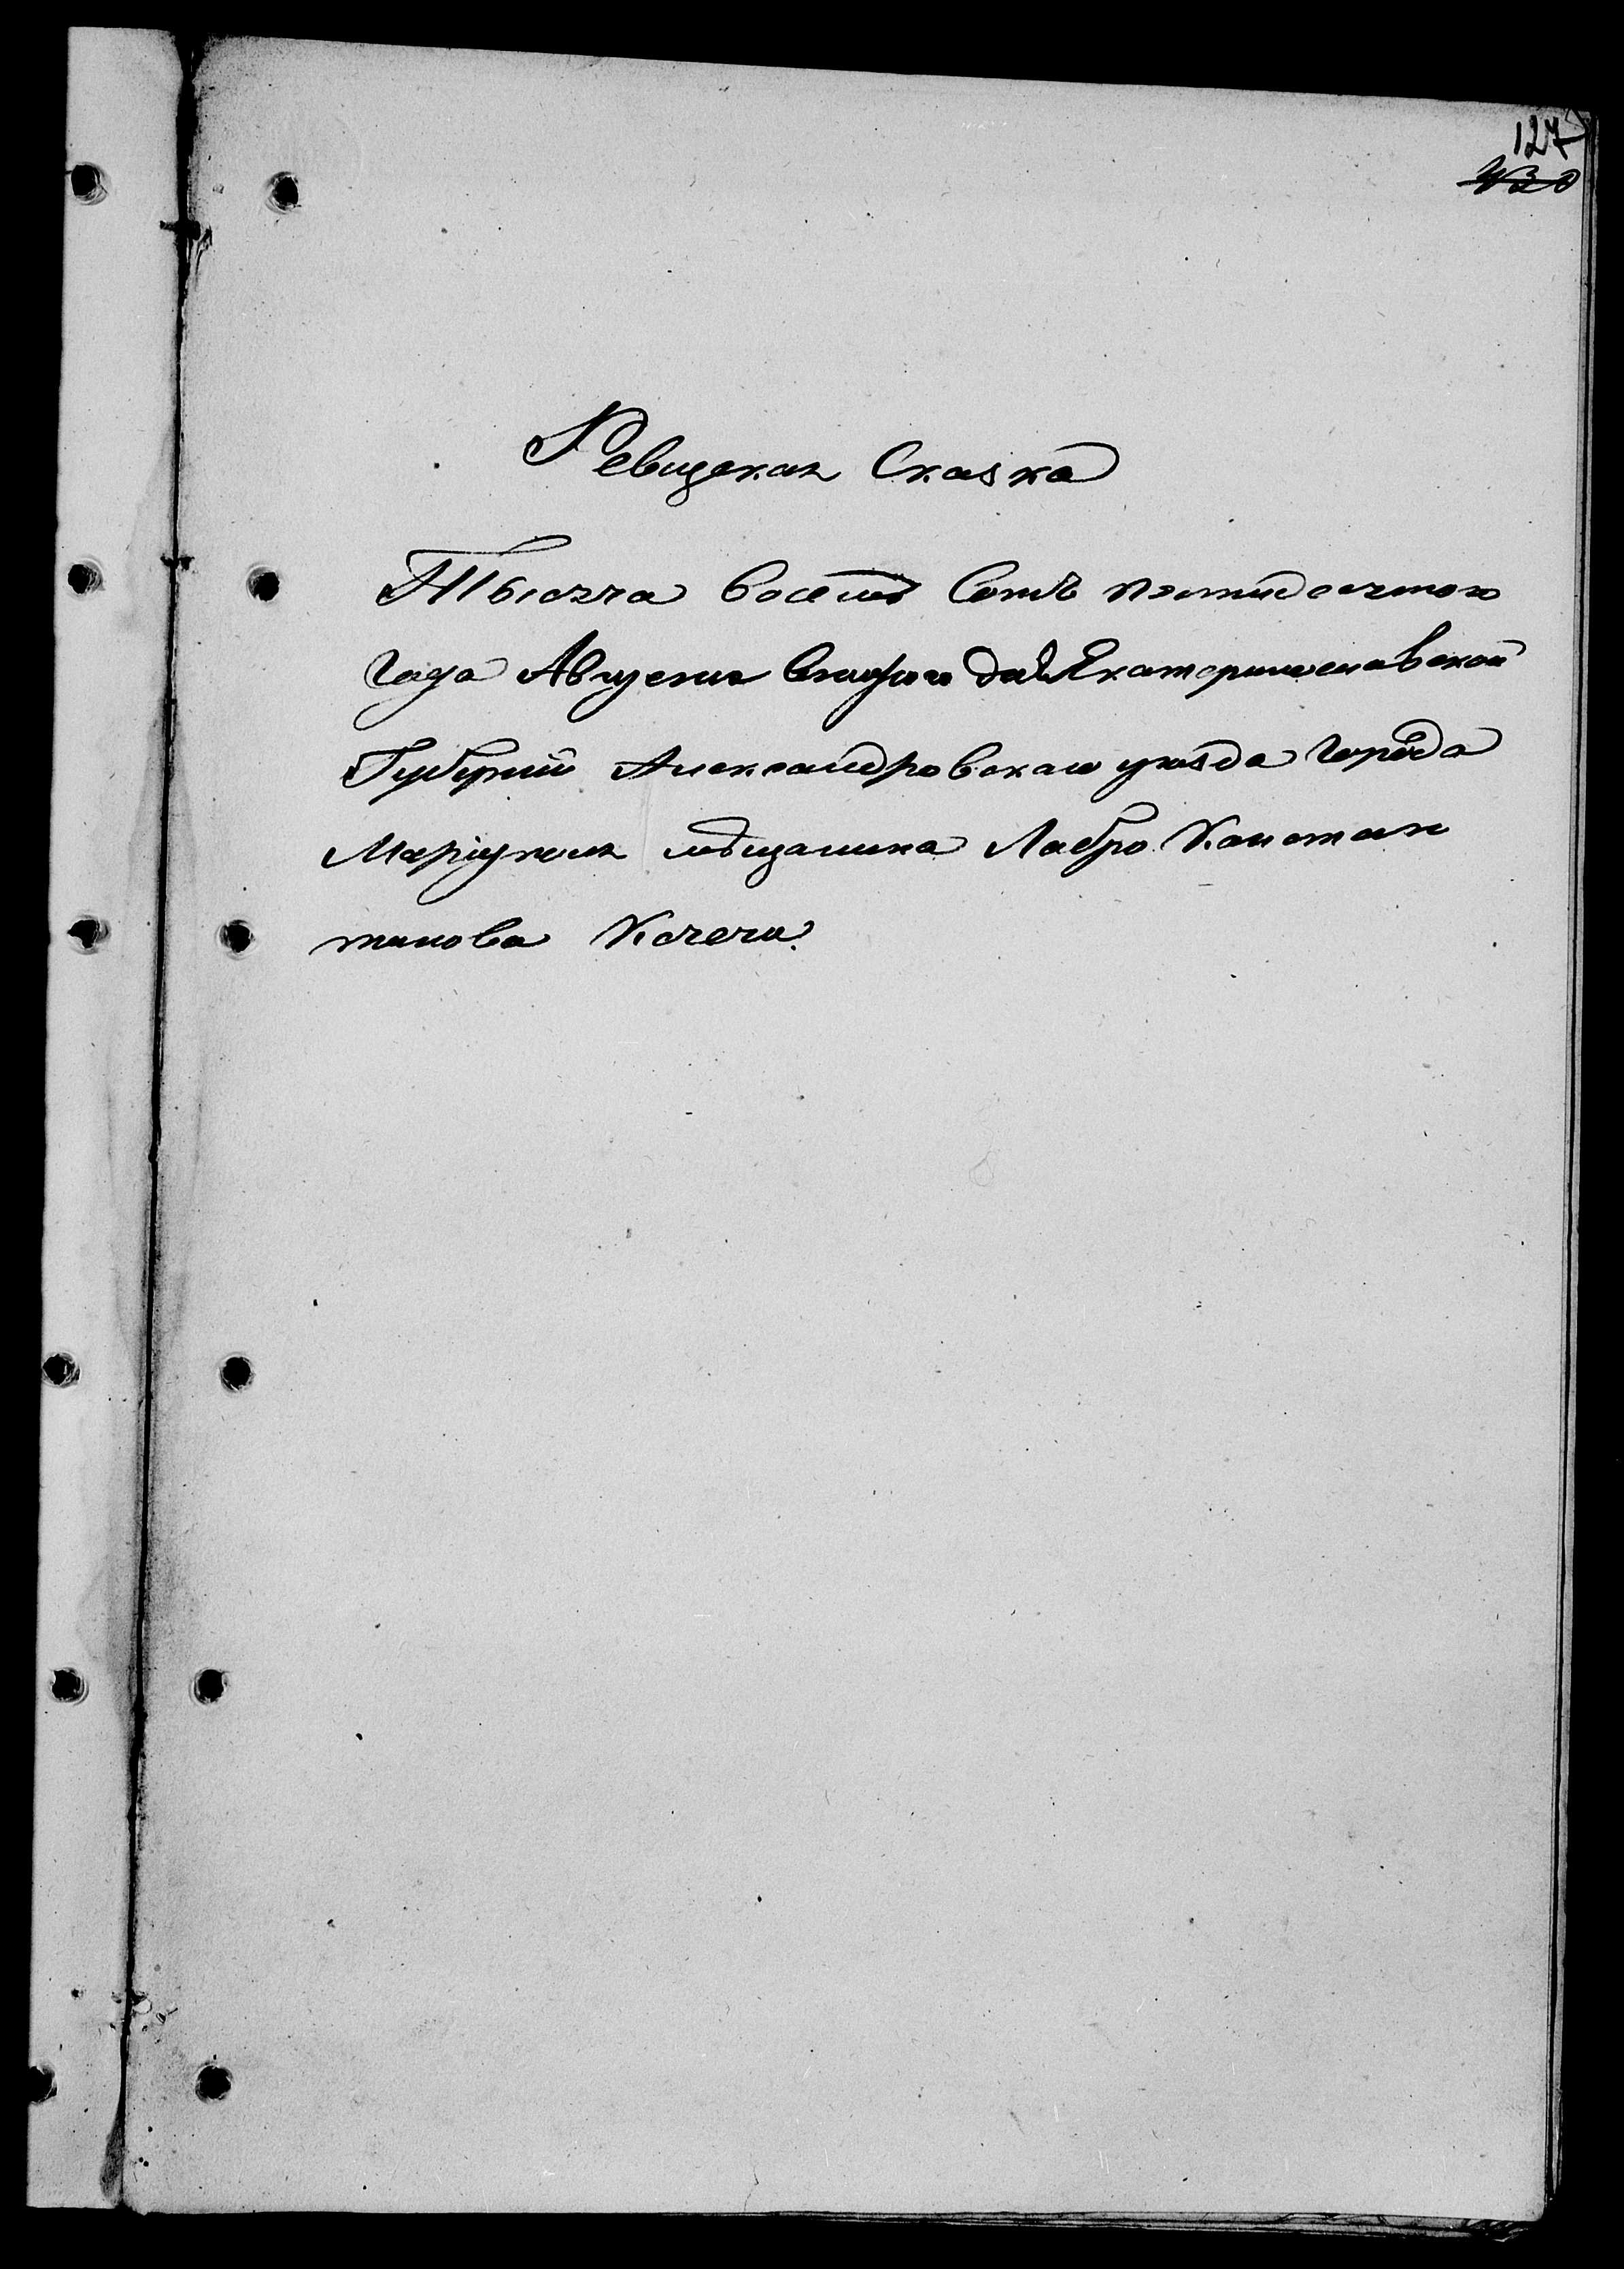 127
430
Ревижская Сказка
Тысяча восемь Сотъ пятидесятого
Года Августа втораго дня Екатеринославской
Губерніи Александровскаго уѣзда Города
Маріуполя мѣщанина Лабро Констан
тинова